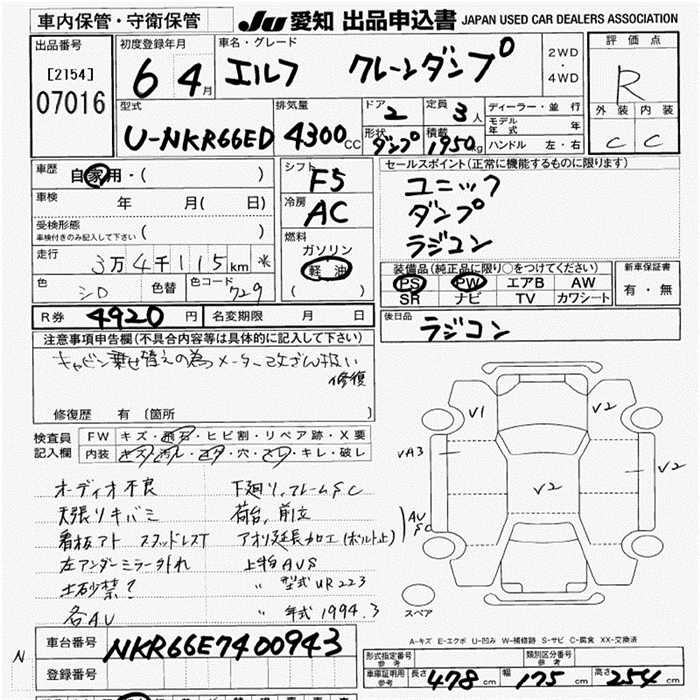 車内保管・守衛保管
JU 愛知 出品申込書 JAPAN USED CAR DEALERS ASSOCIATION
出品番号
[2154]
07016
初度登録年月
6 4月
車名・グレード
エルフ クレーンダンプ
2WD
・
4WD
評価点
R
外装 内装
C C
型式
U-NKR66ED
排気量
4300cc
ドア
2
定員
3人
形状
ダンプ
積載
1950kg
ディーラー・並行
モデル年式 年
ハンドル 左・右
車歴
自家用・( )
車検 年 月( 日)
受検形態
車検付きのみ記入して下さい ( )
走行
3万4千115km *
色 シロ 色替 色コード 729
シフト
F5
冷房
AC
燃料
ガソリン
軽油
( )
セールスポイント(正常に機能するものに限ります)
ユニック
ダンプ
ラジコン
装備品(純正品に限り○をつけてください)
PS PW エアB AW
SR ナビ TV カワシート
新車保証書
有・無
R券 4920円 名変期限 月 日
後日品
ラジコン
注意事項申告欄(不具合内容等は具体的に記入して下さい)
キャビン乗せ替えの為メーター改ざん扱い
修復
修復歴 有 〔箇所 〕
検査員
記入欄
FW キズ・飛石・ヒビ割・リペア跡・X要
内装 キズ・汚レ・コゲ・穴・スレ・キレ・破レ
オーディオ不良
天張りキバミ
看板アト スタッドレスT
左アンダーミラー外れ
土砂禁?
各AU
下廻り、フレームSC
荷台、前立
アオリ延長加工(ボルト止)
上物AUS
〃 型式UR223
〃 年式1994.3
AU
SC
V1
V2
VA3
V2
V2
スペア
A-キズ E-エクボ U-凹み W-補修跡 S-サビ C-腐食 XX-交換済
N
車台番号 NKR66E7400943
登録番号
形式指定番号
参考
類別区分番号
参考
車庫証明用
参考
長さ 478cm 幅 175cm 高さ 254cm